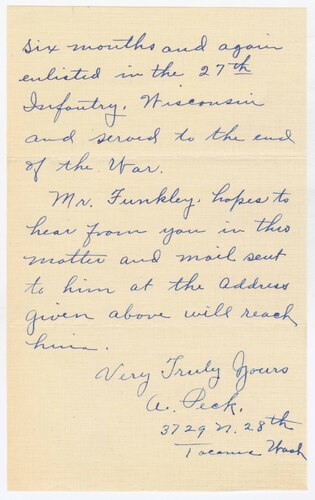 six months and again
enlisted in the 27th
Infantry, Wisconsin
and served to the end
of the War.
Mr. Funkley, hopes to
hear from you in this
matter and mail sent
to him at the Address
given above will reach
him.
Very Truly Yours
A. Peck.
3729 N. 28th
Tacoma Wash